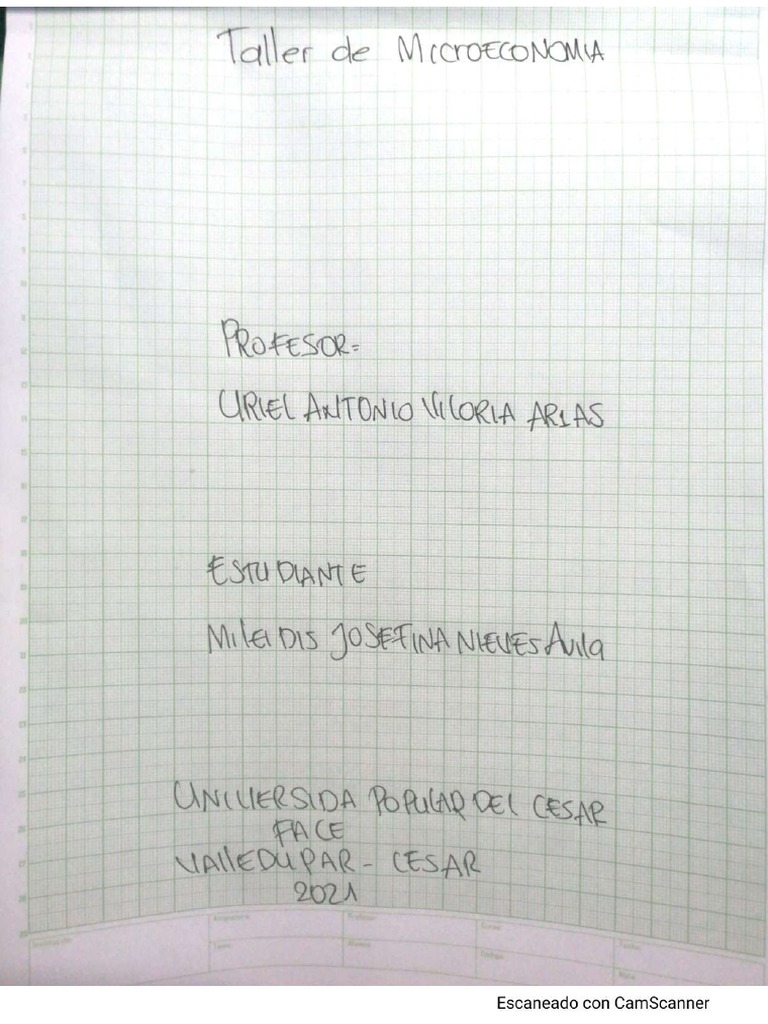 Taller de MICROECONOMIA
PROFESOR=
URIEL ANTONIO VILORIA ARIAS
ESTUDIANTE
MileiDIS JOSEFINA NIEVES Avila
UNIVERSIDA POPULAR DEL CESAR
FACE
VAllEDUPAR - CESAR
2021
Escaneado con CamScanner